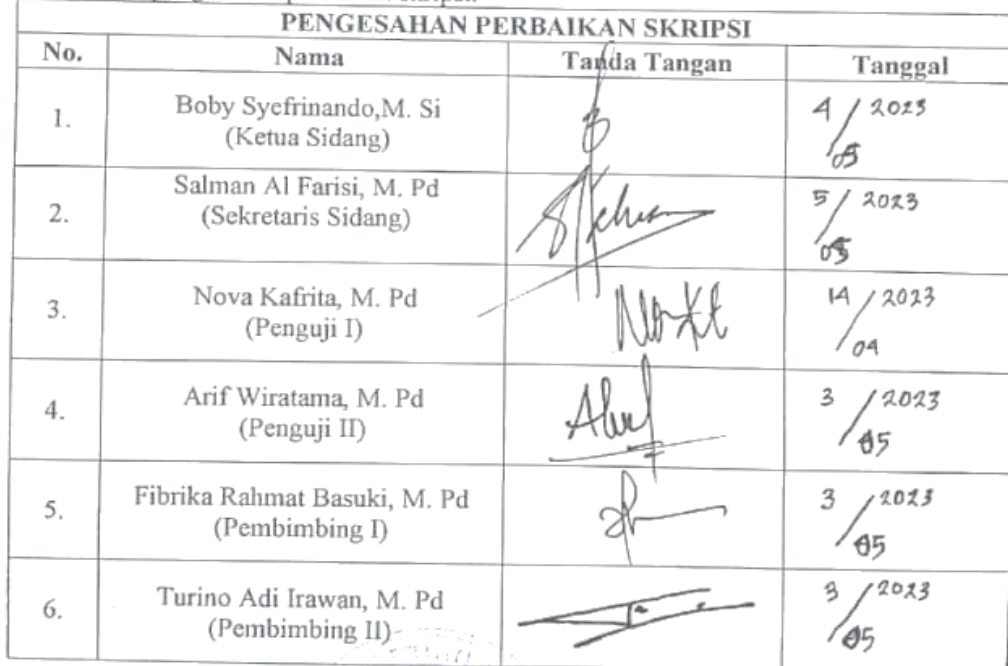 PENGESAHAN PERBAIKAN SKRIPSI
No. Nama Tanda Tangan Tanggal
1. Boby Syefrinando,M. Si
(Ketua Sidang)
4 / 2023
05
2. Salman Al Farisi, M. Pd
(Sekretaris Sidang)
5 / 2023
05
3. Nova Kafrita, M. Pd
(Penguji I)
14 / 2023
04
4. Arif Wiratama, M. Pd
(Penguji II)
3 / 2023
05
5. Fibrika Rahmat Basuki, M. Pd
(Pembimbing I)
3 / 2023
05
6. Turino Adi Irawan, M. Pd
(Pembimbing II)
3 / 2023
05